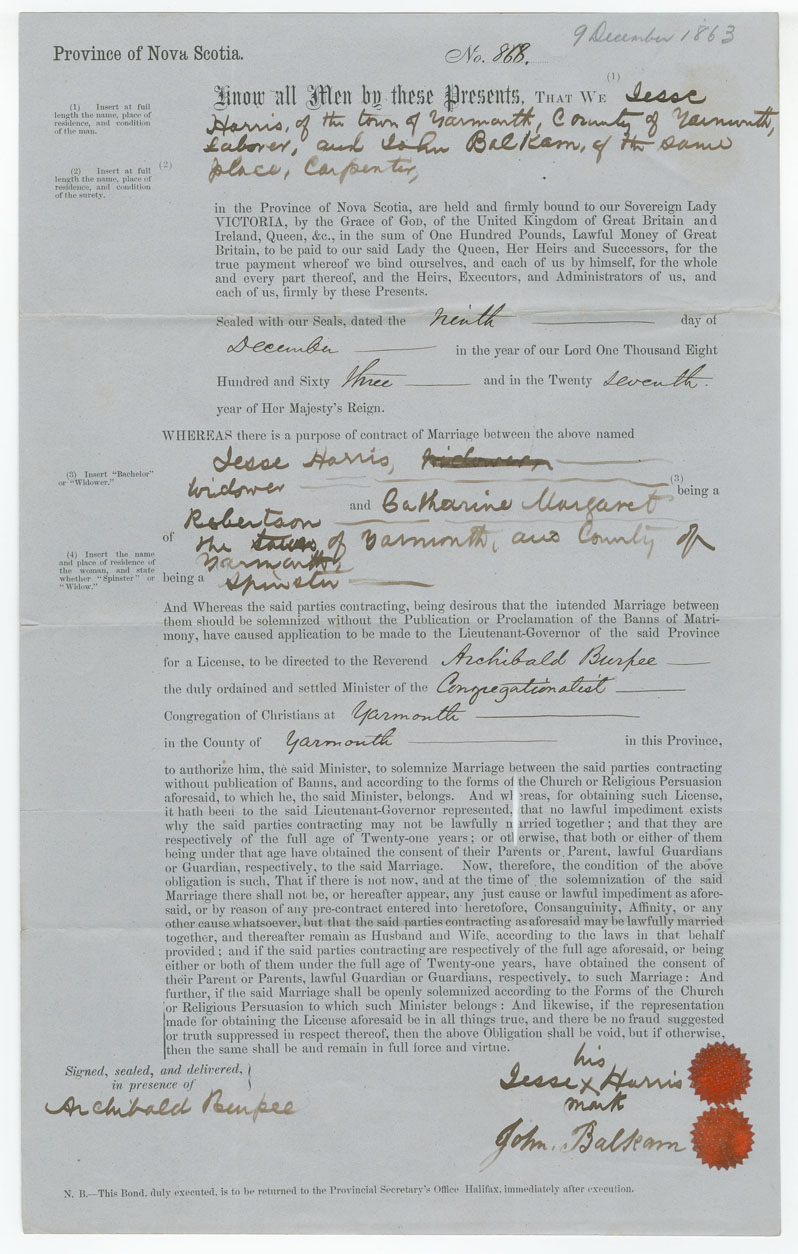 9 December 1863
Province of Nova Scotia.
No. 868.
(1) Insert at full
length the name, place of
residence, and condition
of the man.
(1)
Know all Men by these Presents, THAT WE Jesse
Harris, of the town of Yarmouth, County of Yarmouth,
Laborer, and John Balkam, of the same
(2) Insert at full
length the name, place of
residence, and condition
of the surety.
(2)
place, Carpenter,
in the Province of Nova Scotia, are held and firmly bound to our Sovereign Lady
VICTORIA, by the Grace of GOD, of the United Kingdom of Great Britain and
Ireland, Queen, &c., in the sum of One Hundred Pounds, Lawful Money of Great
Britain, to be paid to our said Lady the Queen, Her Heirs and Successors, for the
true payment whereof we bind ourselves, and each of us by himself, for the whole
and every part thereof, and the Heirs, Executors, and Administrators of us, and
each of us, firmly by these Presents.
Sealed with our Seals, dated the Ninth day of
December in the year of our Lord One Thousand Eight
Hundred and Sixty three and in the Twenty seventh
year of Her Majesty's Reign.
WHEREAS there is a purpose of contract of Marriage between the above named
Jesse Harris,
(3) Insert "Bachelor"
or "Widower."
(3)
Widower being a
and Catharine Margaret
Robertson
of the town of Yarmouth, and County of
Yarmouth
(4) Insert the name
and place of residence of
the woman, and state
whether "Spinster" or
"Widow."
being a Spinster
And Whereas the said parties contracting, being desirous that the intended Marriage between
them should be solemnized without the Publication or Proclamation of the Banns of Matri-
mony, have caused application to be made to the Lieutenant-Governor of the said Province
for a License, to be directed to the Reverend Archibald Burpee
the duly ordained and settled Minister of the Congregationalist
Congregation of Christians at Yarmouth
in the County of Yarmouth in this Province,
to authorize him, the said Minister, to solemnize Marriage between the said parties contracting
without publication of Banns, and according to the forms of the Church or Religious Persuasion
aforesaid, to which he, the said Minister, belongs. And whereas, for obtaining such License,
it hath been to the said Lieutenant-Governor represented, that no lawful impediment exists
why the said parties contracting may not be lawfully married together; and that they are
respectively of the full age of Twenty-one years; or otherwise, that both or either of them
being under that age have obtained the consent of their Parents or Parent, lawful Guardians
or Guardian, respectively, to the said Marriage. Now, therefore, the condition of the above
obligation is such, That if there is not now, and at the time of the solemnization of the said
Marriage there shall not be, or hereafter appear, any just cause or lawful impediment as afore-
said, or by reason of any pre-contract entered into heretofore, Consanguinity, Affinity, or any
other cause whatsoever, but that the said parties contracting as aforesaid may be lawfully married
together, and thereafter remain as Husband and Wife, according to the laws in that behalf
provided; and if the said parties contracting are respectively of the full age aforesaid, or being
either or both of them under the full age of Twenty-one years, have obtained the consent of
their Parent or Parents, lawful Guardian or Guardians, respectively, to such Marriage: And
further, if the said Marriage shall be openly solemnized according to the Forms of the Church
or Religious Persuasion to which such Minister belongs: And likewise, if the representation
made for obtaining the License aforesaid be in all things true, and there be no fraud suggested
or truth suppressed in respect thereof, then the above Obligation shall be void, but if otherwise,
then the same shall be and remain in full force and virtue.
Signed, sealed, and delivered,
in presence of
Archibald Burpee
his
Jesse x Harris
mark
John. Balkam
N. B.—This Bond, duly executed, is to be returned to the Provincial Secretary's Office Halifax, immediately after execution.